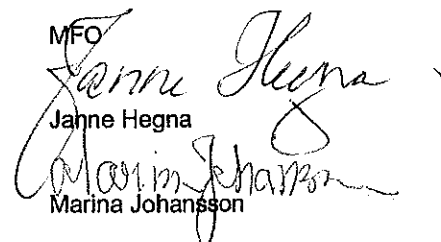 MFO
Janne Hegna
Janne Hegna
Marina Johansson
Marina Johansson